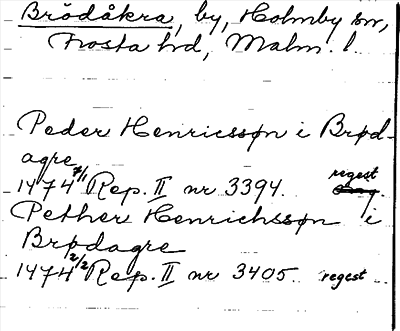 Brödåkra, by, Holmby sn,
Frosta hd, Malm. l.
Peder Henricssøn i Brød-
agre
1474 7/1 Rep. II nr 3394. regest
Pether Henrichssøn i
Brødagre
1474 2/2 Rep. II nr 3405. regest